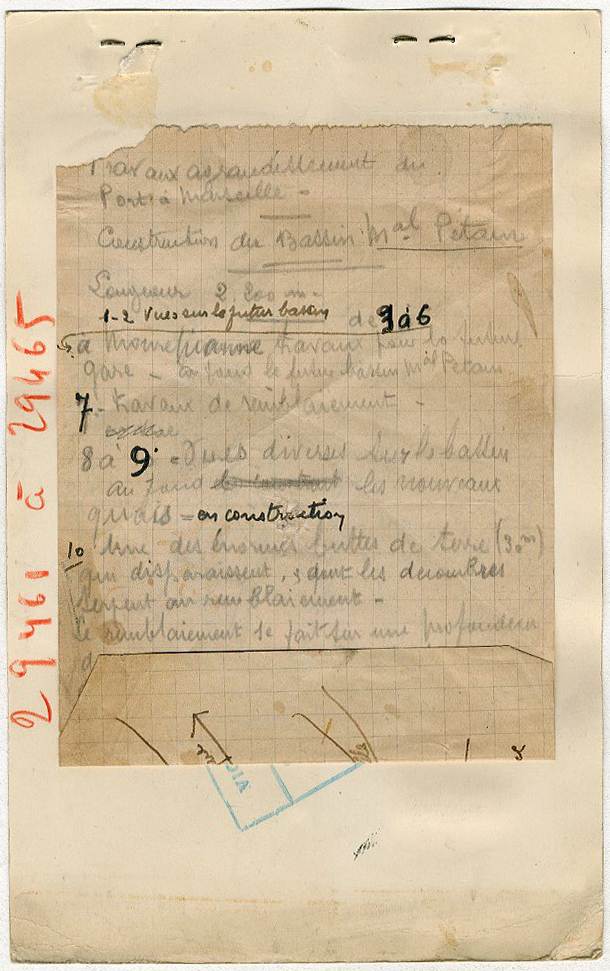 Travaux agrandissement du
Port à Marseille -
Construction du Bassin Mal Pétain
Longueur 2 200 m -
1-2 Vues sur le futur bassin
de 3 à 6
à travaux pour la future
gare - au fond le futur bassin Mal Pétain
7 - travaux de remblaiement -
8 à 9 - Vues diverses sur le bassin
au fond les nouveaux
quais - en construction
10 Une des énormes buttes de terre (30m)
qui disparaissent, dont les décombres
servent au remblaiement -
le remblaiement se fait sur une profondeur
DIA
29460 à 29465